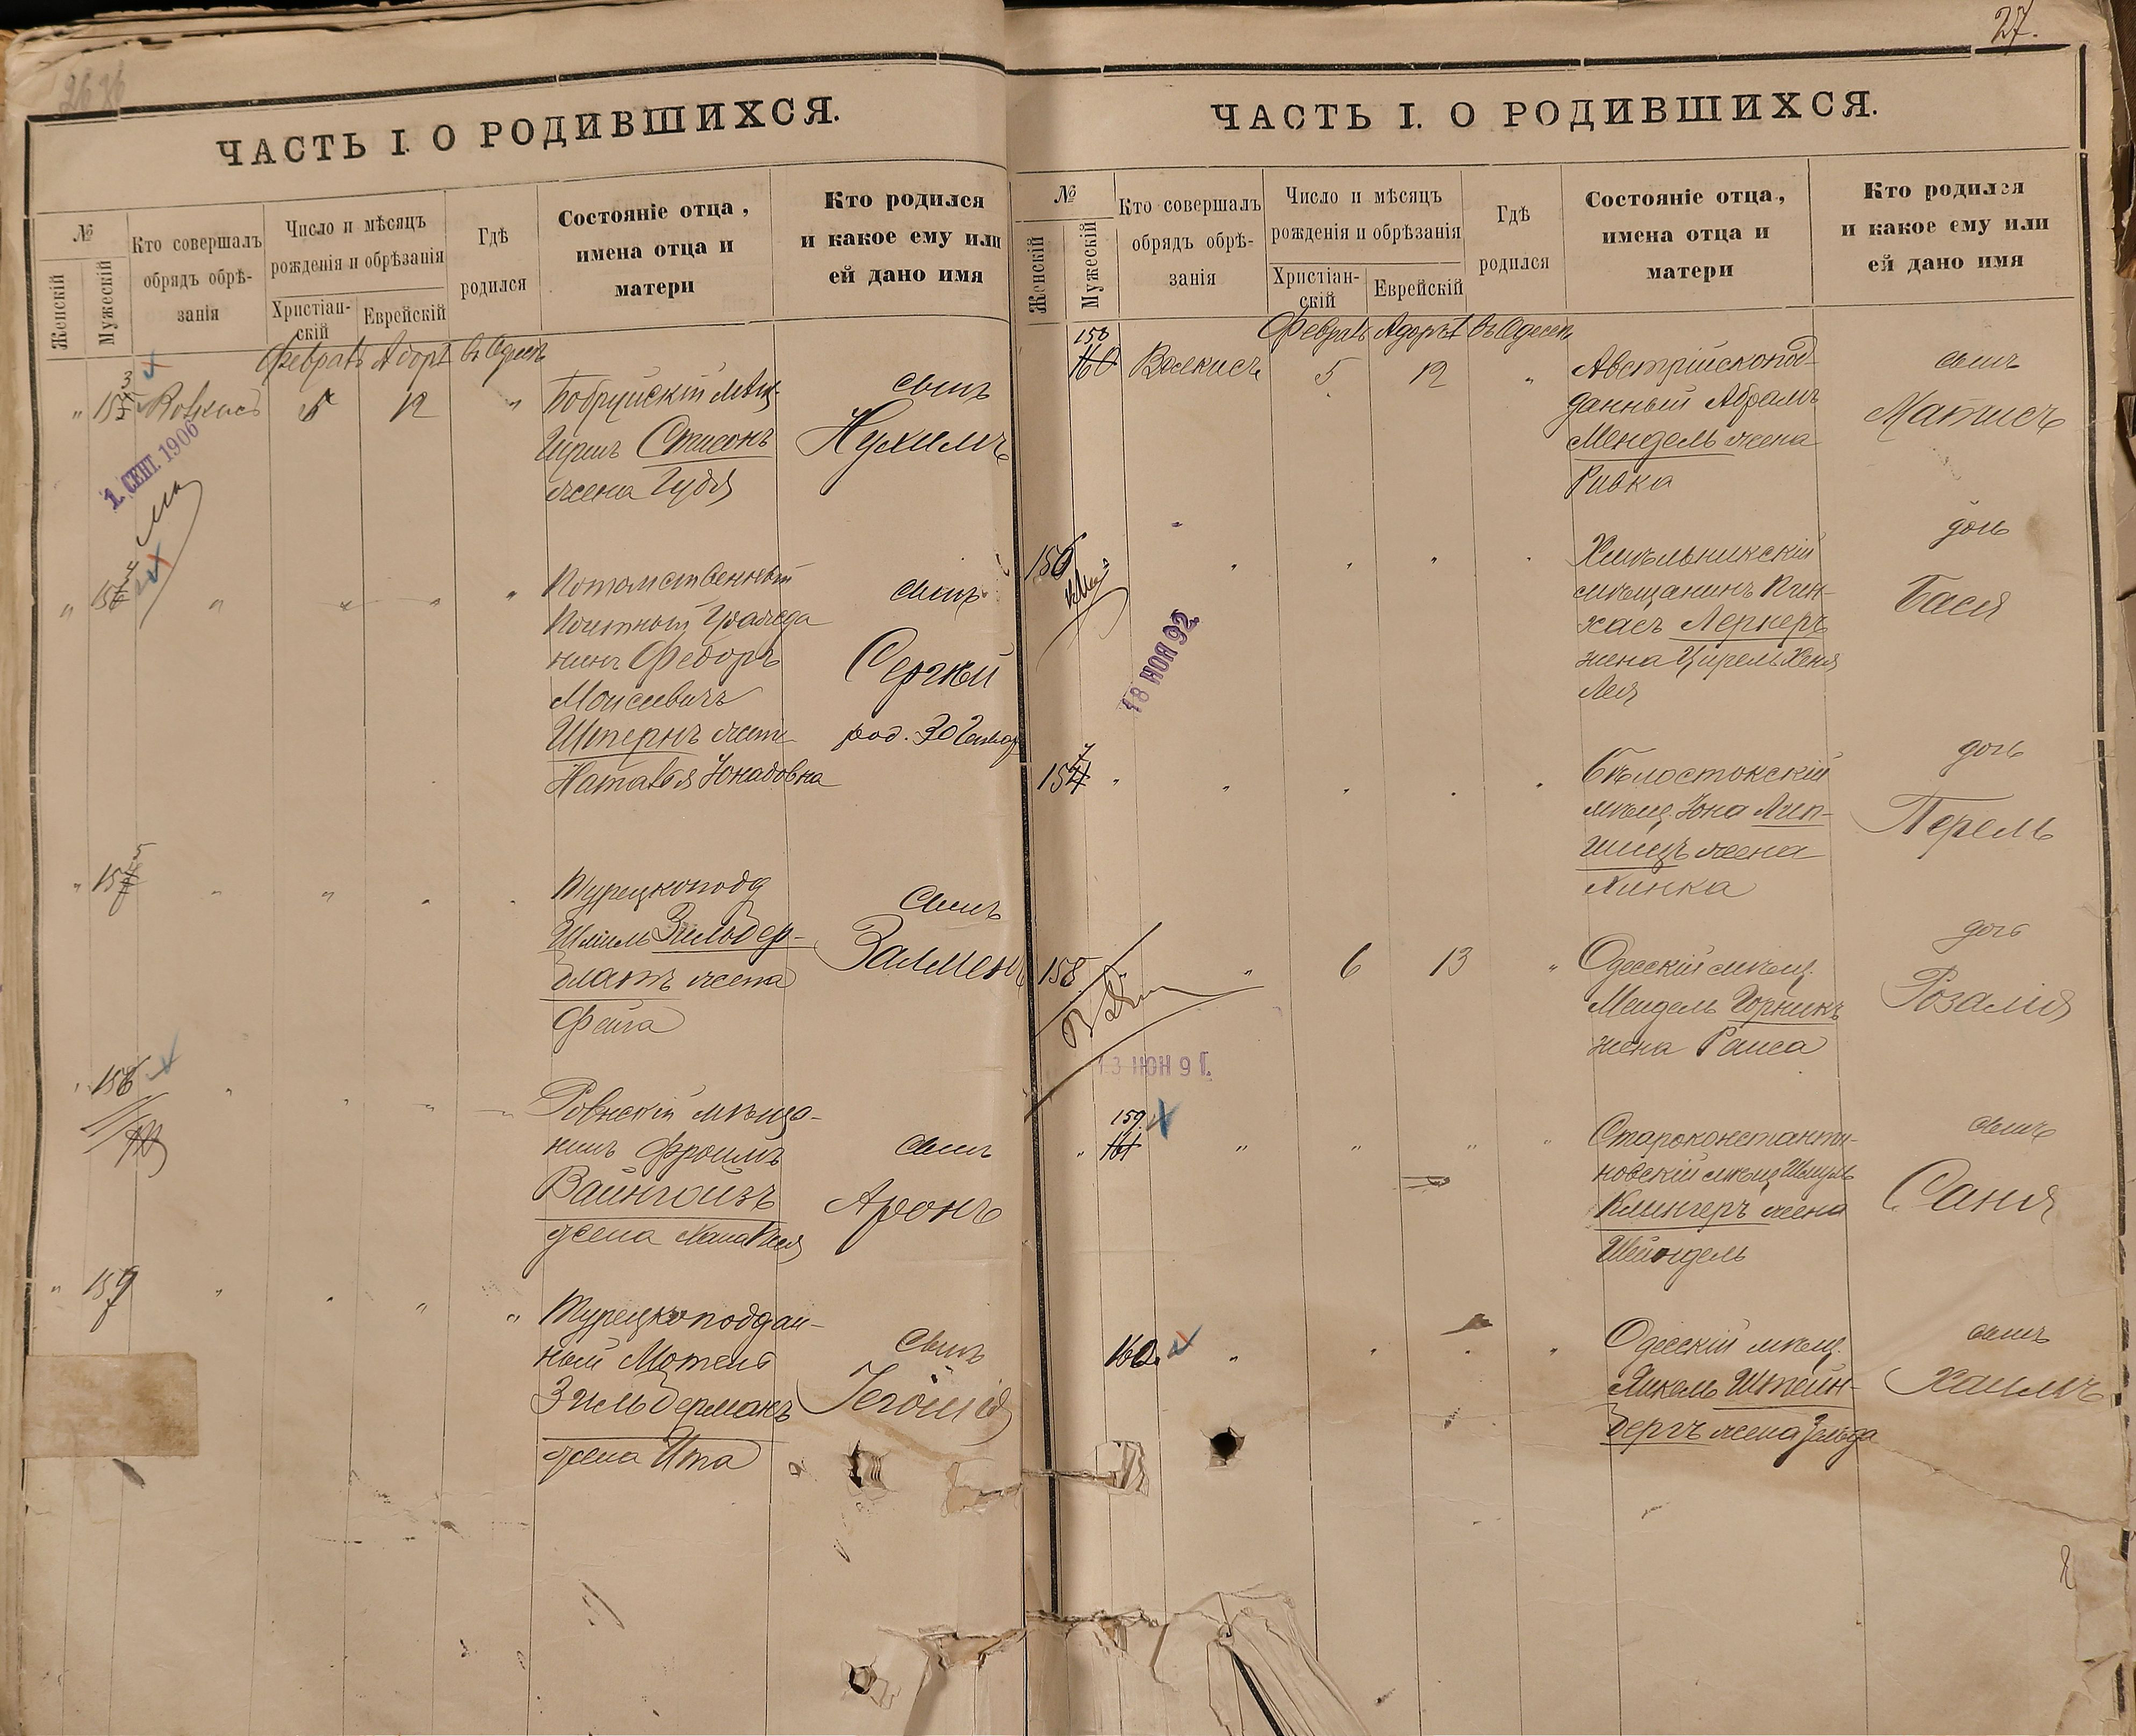 27.
ЧАСТЬ I. О РОДИВШИХСЯ.
№
Женскій
Мужескій
Кто совершалъ
обрядъ обрѣ-
занія
Число и мѣсяцъ
рожденія и обрѣзанія
Христіан-
скій
Еврейскій
Гдѣ
родился
Состояніе отца,
имена отца и
матери
Кто родился
и какое ему или
ей дано имя
Февраль Адаръ въ Одессѣ
5 12
Бобруйскій мѣщ.
жена
сынъ
Нухимъ
1. СЕНТ. 1906
Потомственный
Почтный Гражда
нинъ Федоръ
Моисеевичъ
Штернъ жена
Наталья
сынъ
Сергѣй
род. 30
Турецкопод
Шміль Зильбер-
блатъ жена
Фейга
сынъ
Залменъ
156
Ровнскій мѣща-
нинъ Фроимъ
Вайнгойзъ
жена
сынъ
Аронъ
157
Турецкоподдан-
ный Мотель
Зильберманъ
жена Ита
сынъ
ЧАСТЬ I. О РОДИВШИХСЯ.
№
Женскій
Мужескій
Кто совершалъ
обрядъ обрѣ-
занія
Число и мѣсяцъ
рожденія и обрѣзанія
Христіан-
скій
Еврейскій
Гдѣ
родился
Состояніе отца,
имена отца и
матери
Кто родился
и какое ему или
ей дано имя
Февраль Адаръ въ Одессѣ
158
160
5 12
Австрійскопод-
данный Абрамъ
Мендель жена
Ривка
сынъ
Матисъ
156
18 НОЯ 92
Хмѣльникскій
мѣщанинъ Пин-
хасъ Лернеръ
жена Цирель Хеня
Лея
дочь
Бася
157
Бѣлостокскій
мѣщ. Іона Лип-
шицъ жена
дочь
Перель
158
6 13
13 ІЮН 91.
Одесскій мѣщ.
Мендель Горникъ
жена Раиса
дочь
Розалія
159.
161
Староконстанти-
новскій мѣщ Шмуль
Клингеръ жена
Шейндель
сынъ
Саня
160.
Одесскій мѣщ.
Янкель Штейн-
бергъ жена Зельда
сынъ
Хаимъ